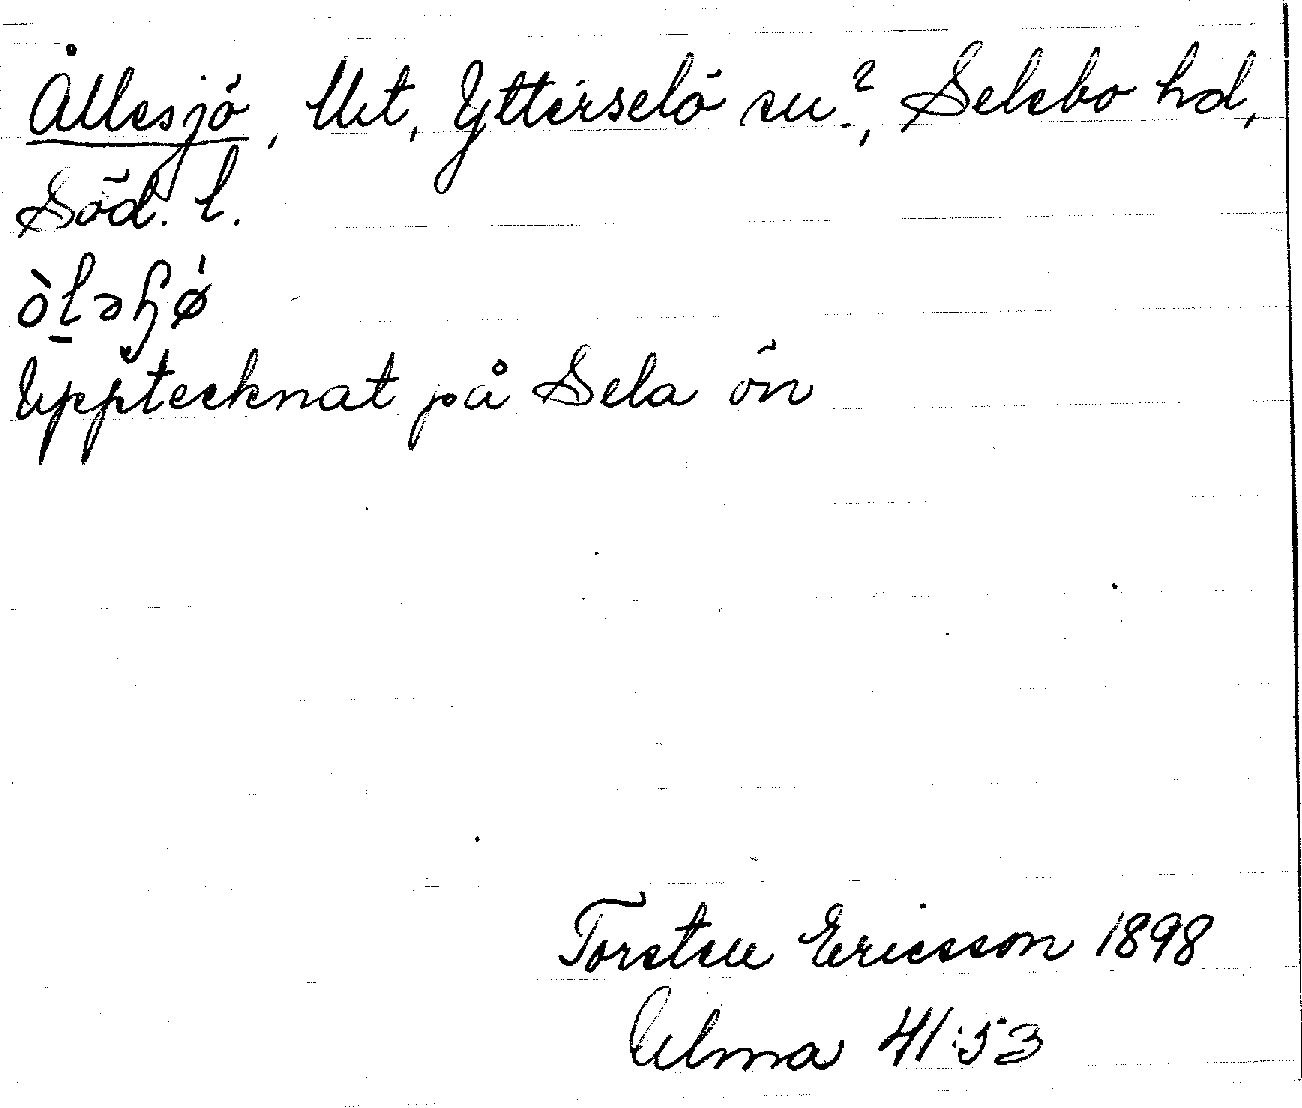 Ållesjö, Ut, Ytterselö sn?, Selebo hd,
Söd. l.
Upptecknat på Sela ön
Torsten Ericsson 1898
Ulma 41:53